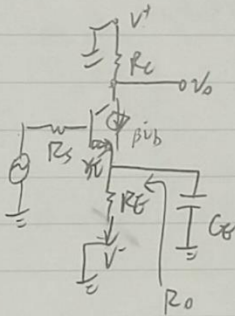 V⁺
Rc
Vo
βib
Rs
rπ
RE
CE
V⁻
Ro